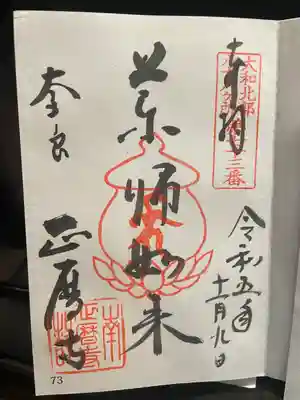 奉拝
大和北部
八十八ヶ所第十三番
令和五年
十一月九日
薬師如来
奈良
正暦寺
73